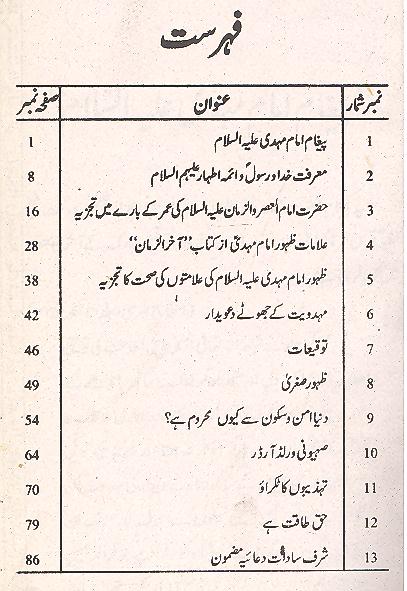 فہرست
نمبر شمار عنوان صفحہ نمبر
1 پیغام امام مہدی علیہ السلام 1
2 معرفت خدا و رسولؐ و ائمہ اطہار علیہم السلام 8
3 حضرت امام العصر والزمان علیہ السلام کی عمر کے بارے میں تجزیہ 16
4 علامات ظہور امام مہدیؑ از کتاب "آخر الزمان" 28
5 ظہور امام مہدی علیہ السلام کی علامتوں کی صحت کا تجزیہ 38
6 مہدویت کے جھوٹے دعویدار 42
7 توقیعات 46
8 ظہور صغریٰ 49
9 دنیا امن و سکون سے کیوں محروم ہے؟ 54
10 صہیونی ورلڈ آرڈر 64
11 تہذیبوں کا ٹکراؤ 70
12 حق طاقت ہے 79
13 شرف سادات دعائیہ مضمون 86